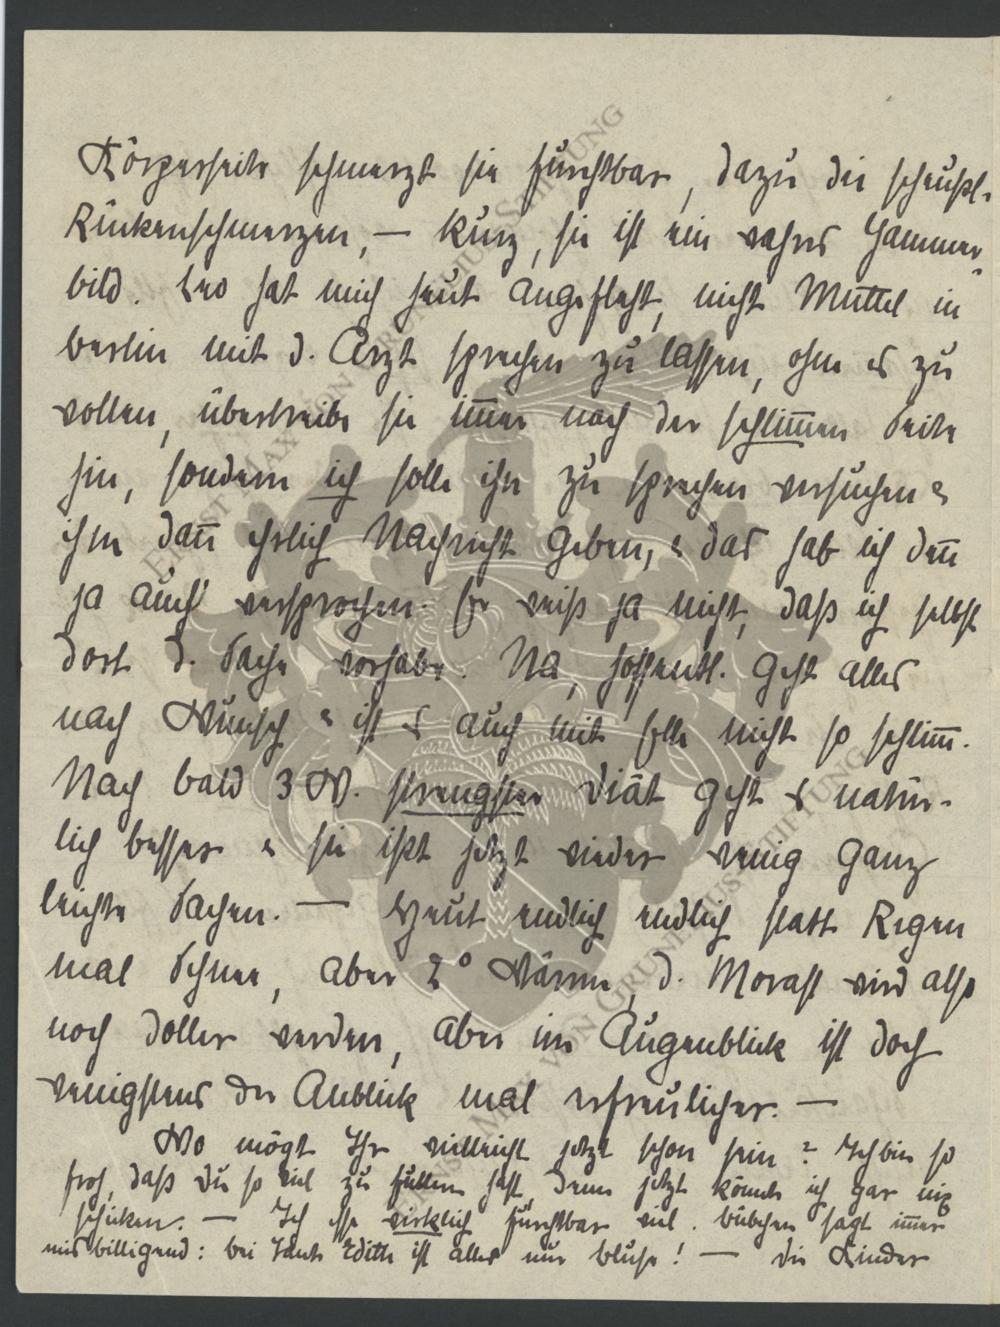 Körperseite schmerzt sie furchtbar, dazu die scheußl.
Rückenschmerzen, — kurz, sie ist ein wahres Jammer-
bild. Leo hat mich heut angefleht, nicht Muttel in
Berlin mit d. Arzt sprechen zu lassen, ohne es zu
wollen, übertreibe sie im̅er nach der schlim̅en Seite
hin, sondern ich solle ihn zu sprechen versuchen &
ihm dan̅ ehrlich Nachricht geben, & das hab ich den̅
ja auch versprochen. Er weiß ja nicht, daß ich selbst
dort d. Sache vorhabe. Na, hoffentl. geht alles
nach Wunsch & ist es auch mit Elle nicht so schlim̅.
Nach bald 3 W. strengster Diät geht es natür-
lich besser & sie ißt jetzt wieder wenig ganz
leichte Sachen. — Heut endlich endlich statt Regen
mal Schnee, aber 2° Wärme, d. Morast wird also
noch doller werden, aber im Augenblick ist doch
wenigstens der Anblick mal erfreulicher. —
Wo mögt Ihr vielleicht jetzt schon sein? Ich bin so
froh, daß Du so viel zu futtern hast, denn jetzt könnte ich gar nix
schicken. — Ich esse wirklich furchtbar viel. Bübchen sagt im̅er
misbilligend: bei Tante Edith ist alles nur Bluse! — Die Kinder